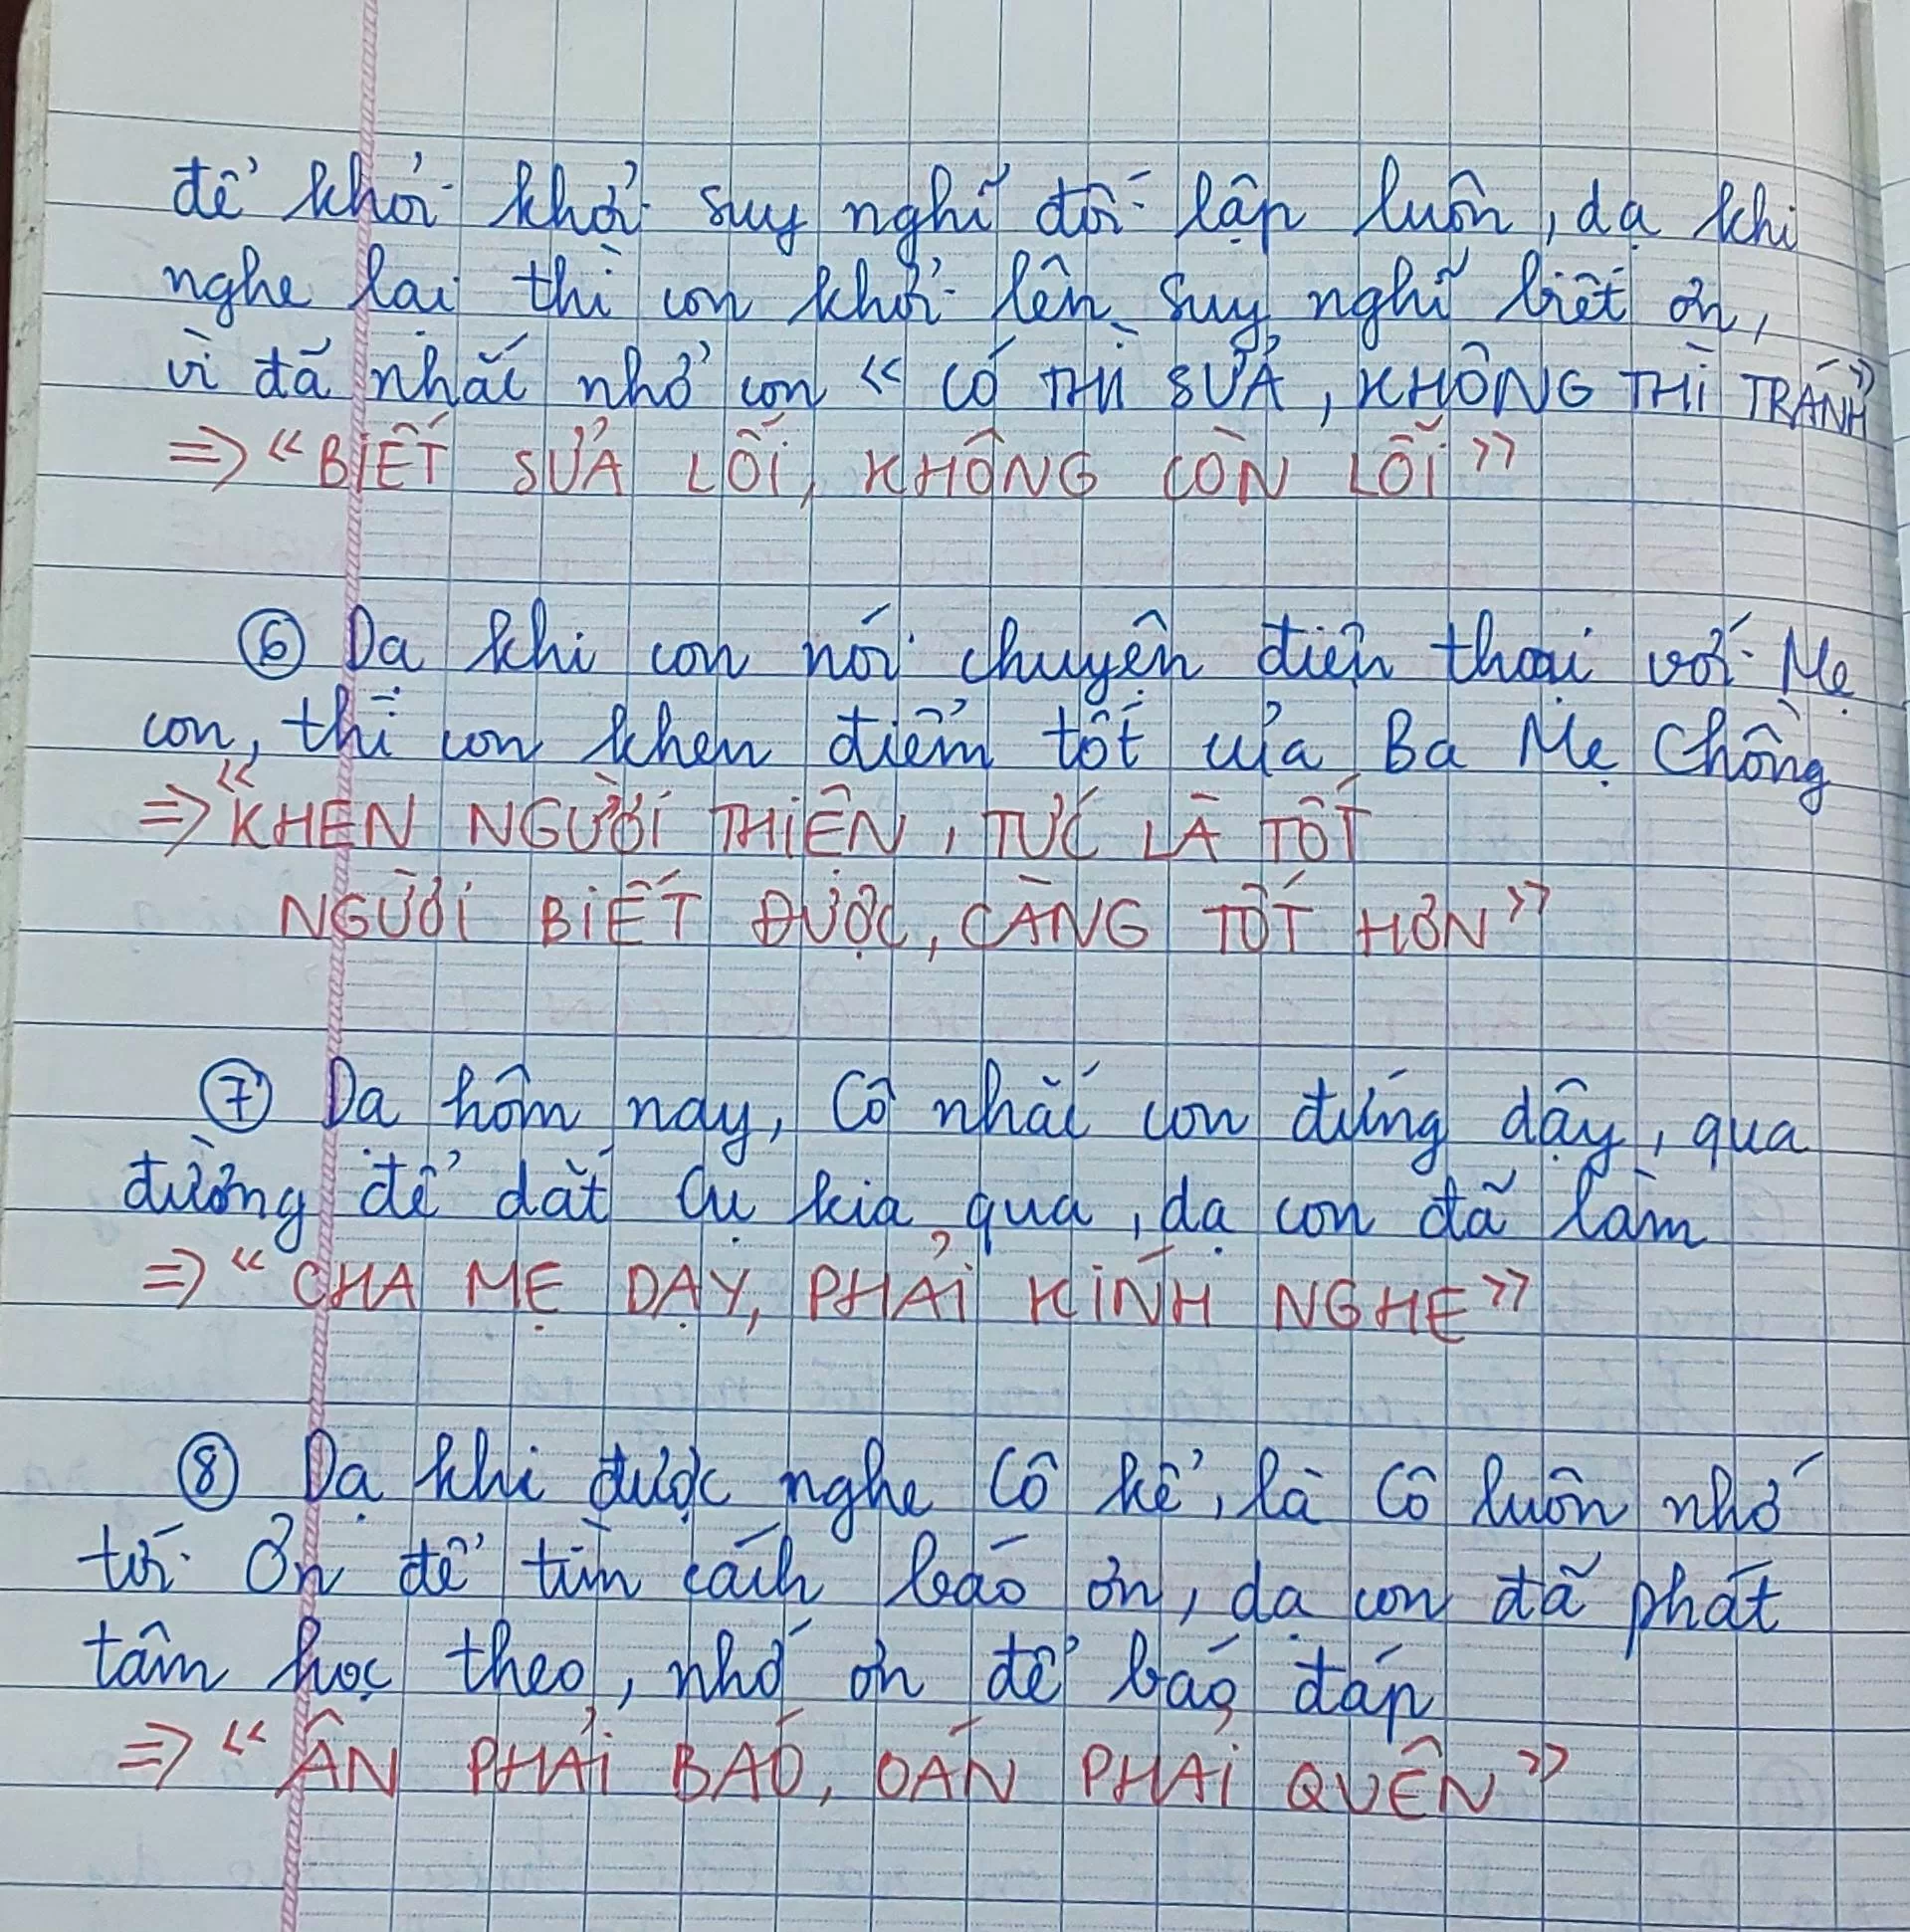 để khỏi khởi suy nghĩ đối lập luôn, dạ khi
nghe lại thì con khởi lên suy nghĩ biết ơn,
vì đã nhắc nhở con « CÓ THÌ SỬA, KHÔNG THÌ TRÁNH »
=> « BIẾT SỬA LỖI, KHÔNG CÒN LỖI »
⑥ Dạ khi con nói chuyện điện thoại với Mẹ
con, thì con khen điểm tốt của Ba Mẹ Chồng
=> « KHEN NGƯỜI THIỆN, TỨC LÀ TỐT
NGƯỜI BIẾT ĐƯỢC, CÀNG TỐT HƠN »
⑦ Dạ hôm nay, Cô nhắc con đứng dậy, qua
đường để dắt Cụ kia qua, dạ con đã làm
=> « CHA MẸ DẠY, PHẢI KÍNH NGHE »
⑧ Dạ khi được nghe Cô kể, là Cô luôn nhớ
tới Ơn để tìm cách báo ơn, dạ con đã phát
tâm học theo, nhớ ơn để báo đáp
=> « ÂN PHẢI BÁO, OÁN PHẢI QUÊN »